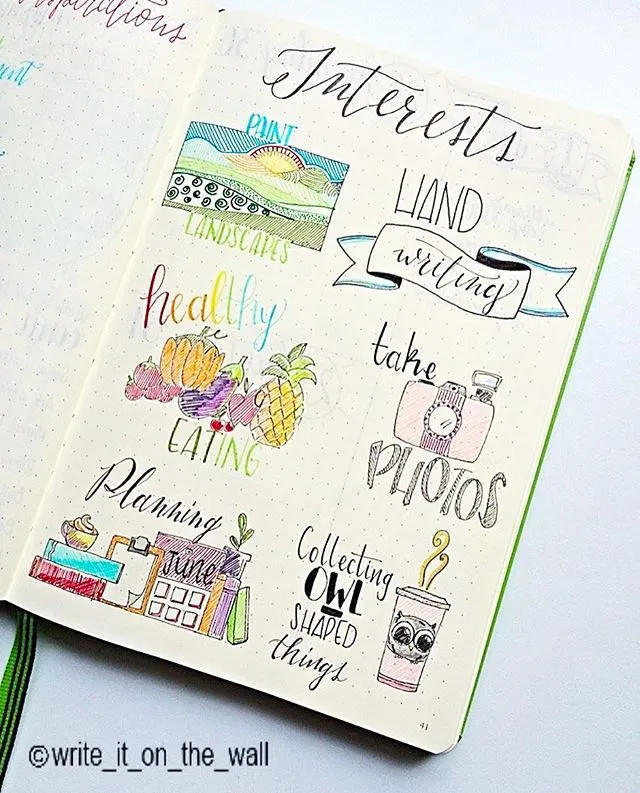 Interests
PAINT
LANDSCAPES
HAND
writing
healthy
EATING
take
PHOTOS
Planning
June
Collecting
OWL
SHAPED
things
41
©write_it_on_the_wall